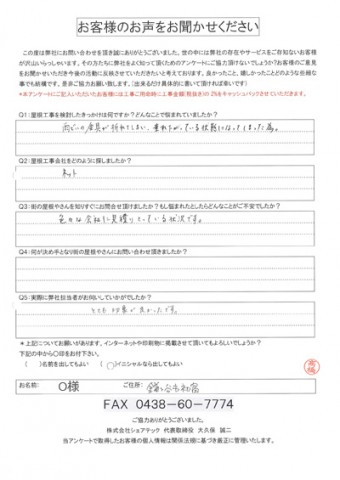 お客様のお声をお聞かせください
この度は弊社にお問い合わせを頂き誠にありがとうございました。世の中には弊社の存在やサービスをご存知ないお客様
が沢山いらっしゃいます。その方たちに弊社をよく知って頂くためのアンケートにご協力頂けないでしょうか?お客様のご意見
をお聞かせいただき今後の活動に反映させていただきたいと考えております。良かったこと、嬉しかったことどのような些細な
事でも結構です。是非ご協力お願い致します。(出来るだけ具体的に書いて頂ければ幸いです)
*本アンケートにご記入いただいたお客様には工事ご用命時に工事金額(税抜き)の2%をキャッシュバックさせていただきます。
Q1:屋根工事を検討したきっかけは何ですか?どんなことで悩まれていましたか?
雨どいの金具が折れてしまい、垂れ下がっている状態になってしまった為。
Q2:屋根工事会社をどのように探しましたか?
ネット
Q3:街の屋根やさんを知りすぐにお問合せ頂けましたか?もし悩まれたとしたらどんなことがご不安でしたか?
色々な会社に見積りとっている状況です。
Q4:何が決め手となり街の屋根やさんにお問い合わせ頂きましたか?
Q5:実際に弊社担当者がお伺いしていかがでしたか?
とても印象が良かったです。
*上記についてお願いがあります。インターネットや印刷物に掲載させて頂いてもよろしいでしょうか?
下記の中から〇印をお付下さい。
( )名前を出してもよい ( 〇 )イニシャルなら出してもよい
お名前: O様 ご住所:
FAX 0438-60-7774
ご協力ありがとうございました。
株式会社シェアテック 代表取締役 大久保 誠二
当アンケートで取得したお客様の個人情報は関係法規に基づき厳正に管理いたします。